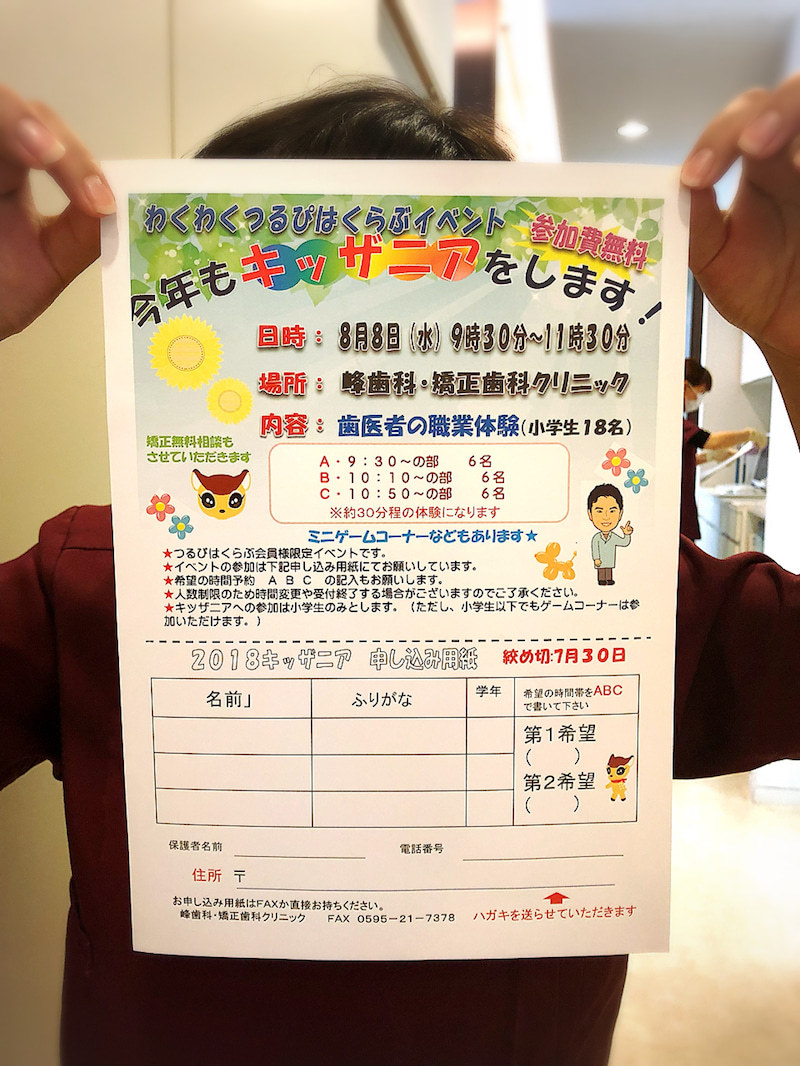 わくわくつるぴはくらぶイベント
参加費無料
今年もキッザニアをします！
日時： 8月8日（水）9時30分～11時30分
場所： 峰歯科・矯正歯科クリニック
内容： 歯医者の職業体験（小学生18名）
矯正無料相談も
させていただきます
A・9：30～の部 6名
B・10：10～の部 6名
C・10：50～の部 6名
※約30分程の体験になります
ミニゲームコーナーなどもあります★
★つるぴはくらぶ会員様限定イベントです。
★イベントの参加は下記申し込み用紙にてお願いしています。
★希望の時間予約 A B C の記入もお願いします。
★人数制限のため時間変更や受付終了する場合がございますのでご了承ください。
★キッザニアへの参加は小学生のみとします。（ただし、小学生以下でもゲームコーナーは参
加いただけます。）
2018キッザニア 申し込み用紙 絞め切:7月30日
名前」 ふりがな 学年 希望の時間帯をABC
で書いて下さい
第1希望
（ ）
第2希望
（ ）
保護者名前 電話番号
住所 〒
お申し込み用紙はFAXか直接お持ちください。
峰歯科・矯正歯科クリニック FAX 0595－21－7378 ハガキを送らせていただきます